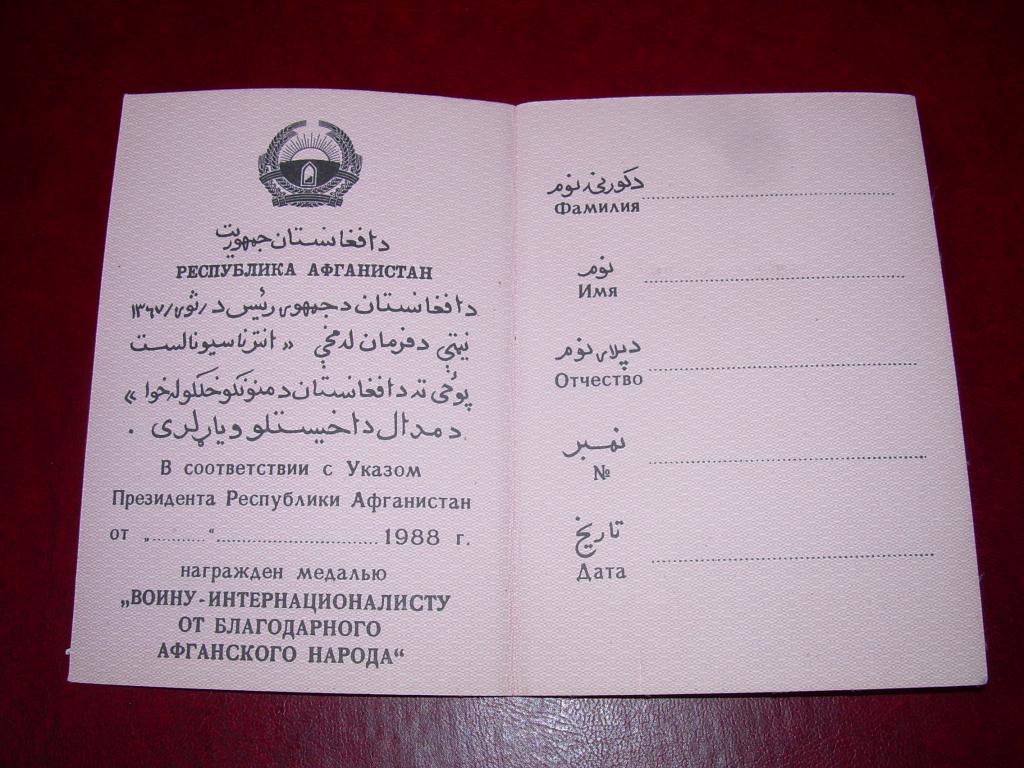 د افغانستان جمهوریت
РЕСПУБЛИКА АФГАНИСТАН
د افغانستان د جمهوری رئیس د / ثور / ۱۳۶۷
نیټې د فرمان له مخې « انترناسیونالست
پوځی ته د افغانستان د منونکو خلکو له خوا »
د مدال د اخیستلو ویاړ لری .
В соответствии с Указом
Президента Республики Афганистан
от „..........“............................ 1988 г.
награжден медалью
„ВОИНУ-ИНТЕРНАЦИОНАЛИСТУ
ОТ БЛАГОДАРНОГО
АФГАНСКОГО НАРОДА“
د کورنۍ نوم
Фамилия
نوم
Имя
د پلار نوم
Отчество
نمبر
№
تاریخ
Дата